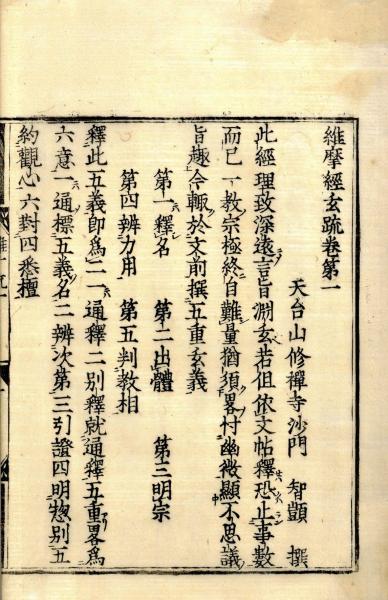 維摩經玄疏卷第一
天台山修禪寺沙門　智顗　撰
此經理致深遠言旨淵玄若但依文帖釋恐止事數
而已一教宗極終自難量猶須畧忖幽微顯不思議
旨趣今輒於文前撰五重玄義
第一釋名　第二出體　第三明宗
第四辨力用　第五判教相
釋此五義即為二一通釋二別釋就通釋五重畧為
六意一通標五義名二辨次第三引證四明惣別五
約觀心六對四悉檀